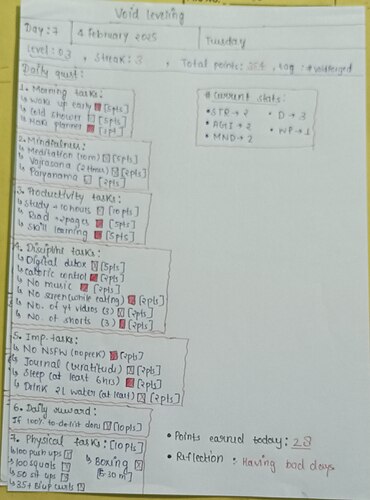 Void leveling
Day: 7
4 February 2025
Tuesday
Level: 03, Streak: 3, Total points: 354, tag: #voidforged
Daily quest:
1. Morning tasks:
↳ Wake up early [5pts]
↳ Cold shower [5pts]
↳ Make planner [1pt]
# Current stats:
• STR → 2 • D → 3
• AGI → 2 • WP → 1
• MND → 2
2. Mindfulness:
↳ Meditation (10m) [5pts]
↳ Vajrasana (2 times) [2pts]
↳ [2pts]
3. Productivity tasks:
↳ Study → 10 hours [10pts]
↳ Read → 2pages [5pts]
↳ Skill learning [5pts]
4. Discipline tasks:
↳ Digital detox [5pts]
↳ caloric control [2pts]
↳ No music [2pts]
↳ No screen (while eating) [2pts]
↳ No. of yt videos (3) [2pts]
↳ No. of shorts (3) [2pts]
5. Imp. tasks:
↳ No NSFW [2pts]
↳ Journal [2pts]
↳ Sleep (at least 6hrs) [2pts]
↳ Drink 2L water (at least) [2pts]
6. Daily reward:
If 100% to-do list done [10pts]
7. Physical tasks: [10pts]
↳ 100 push ups
↳ Boxing
↳ 100 squats
↳ 50 sit ups
• Points earned today: 28
• Reflection: Having bad days